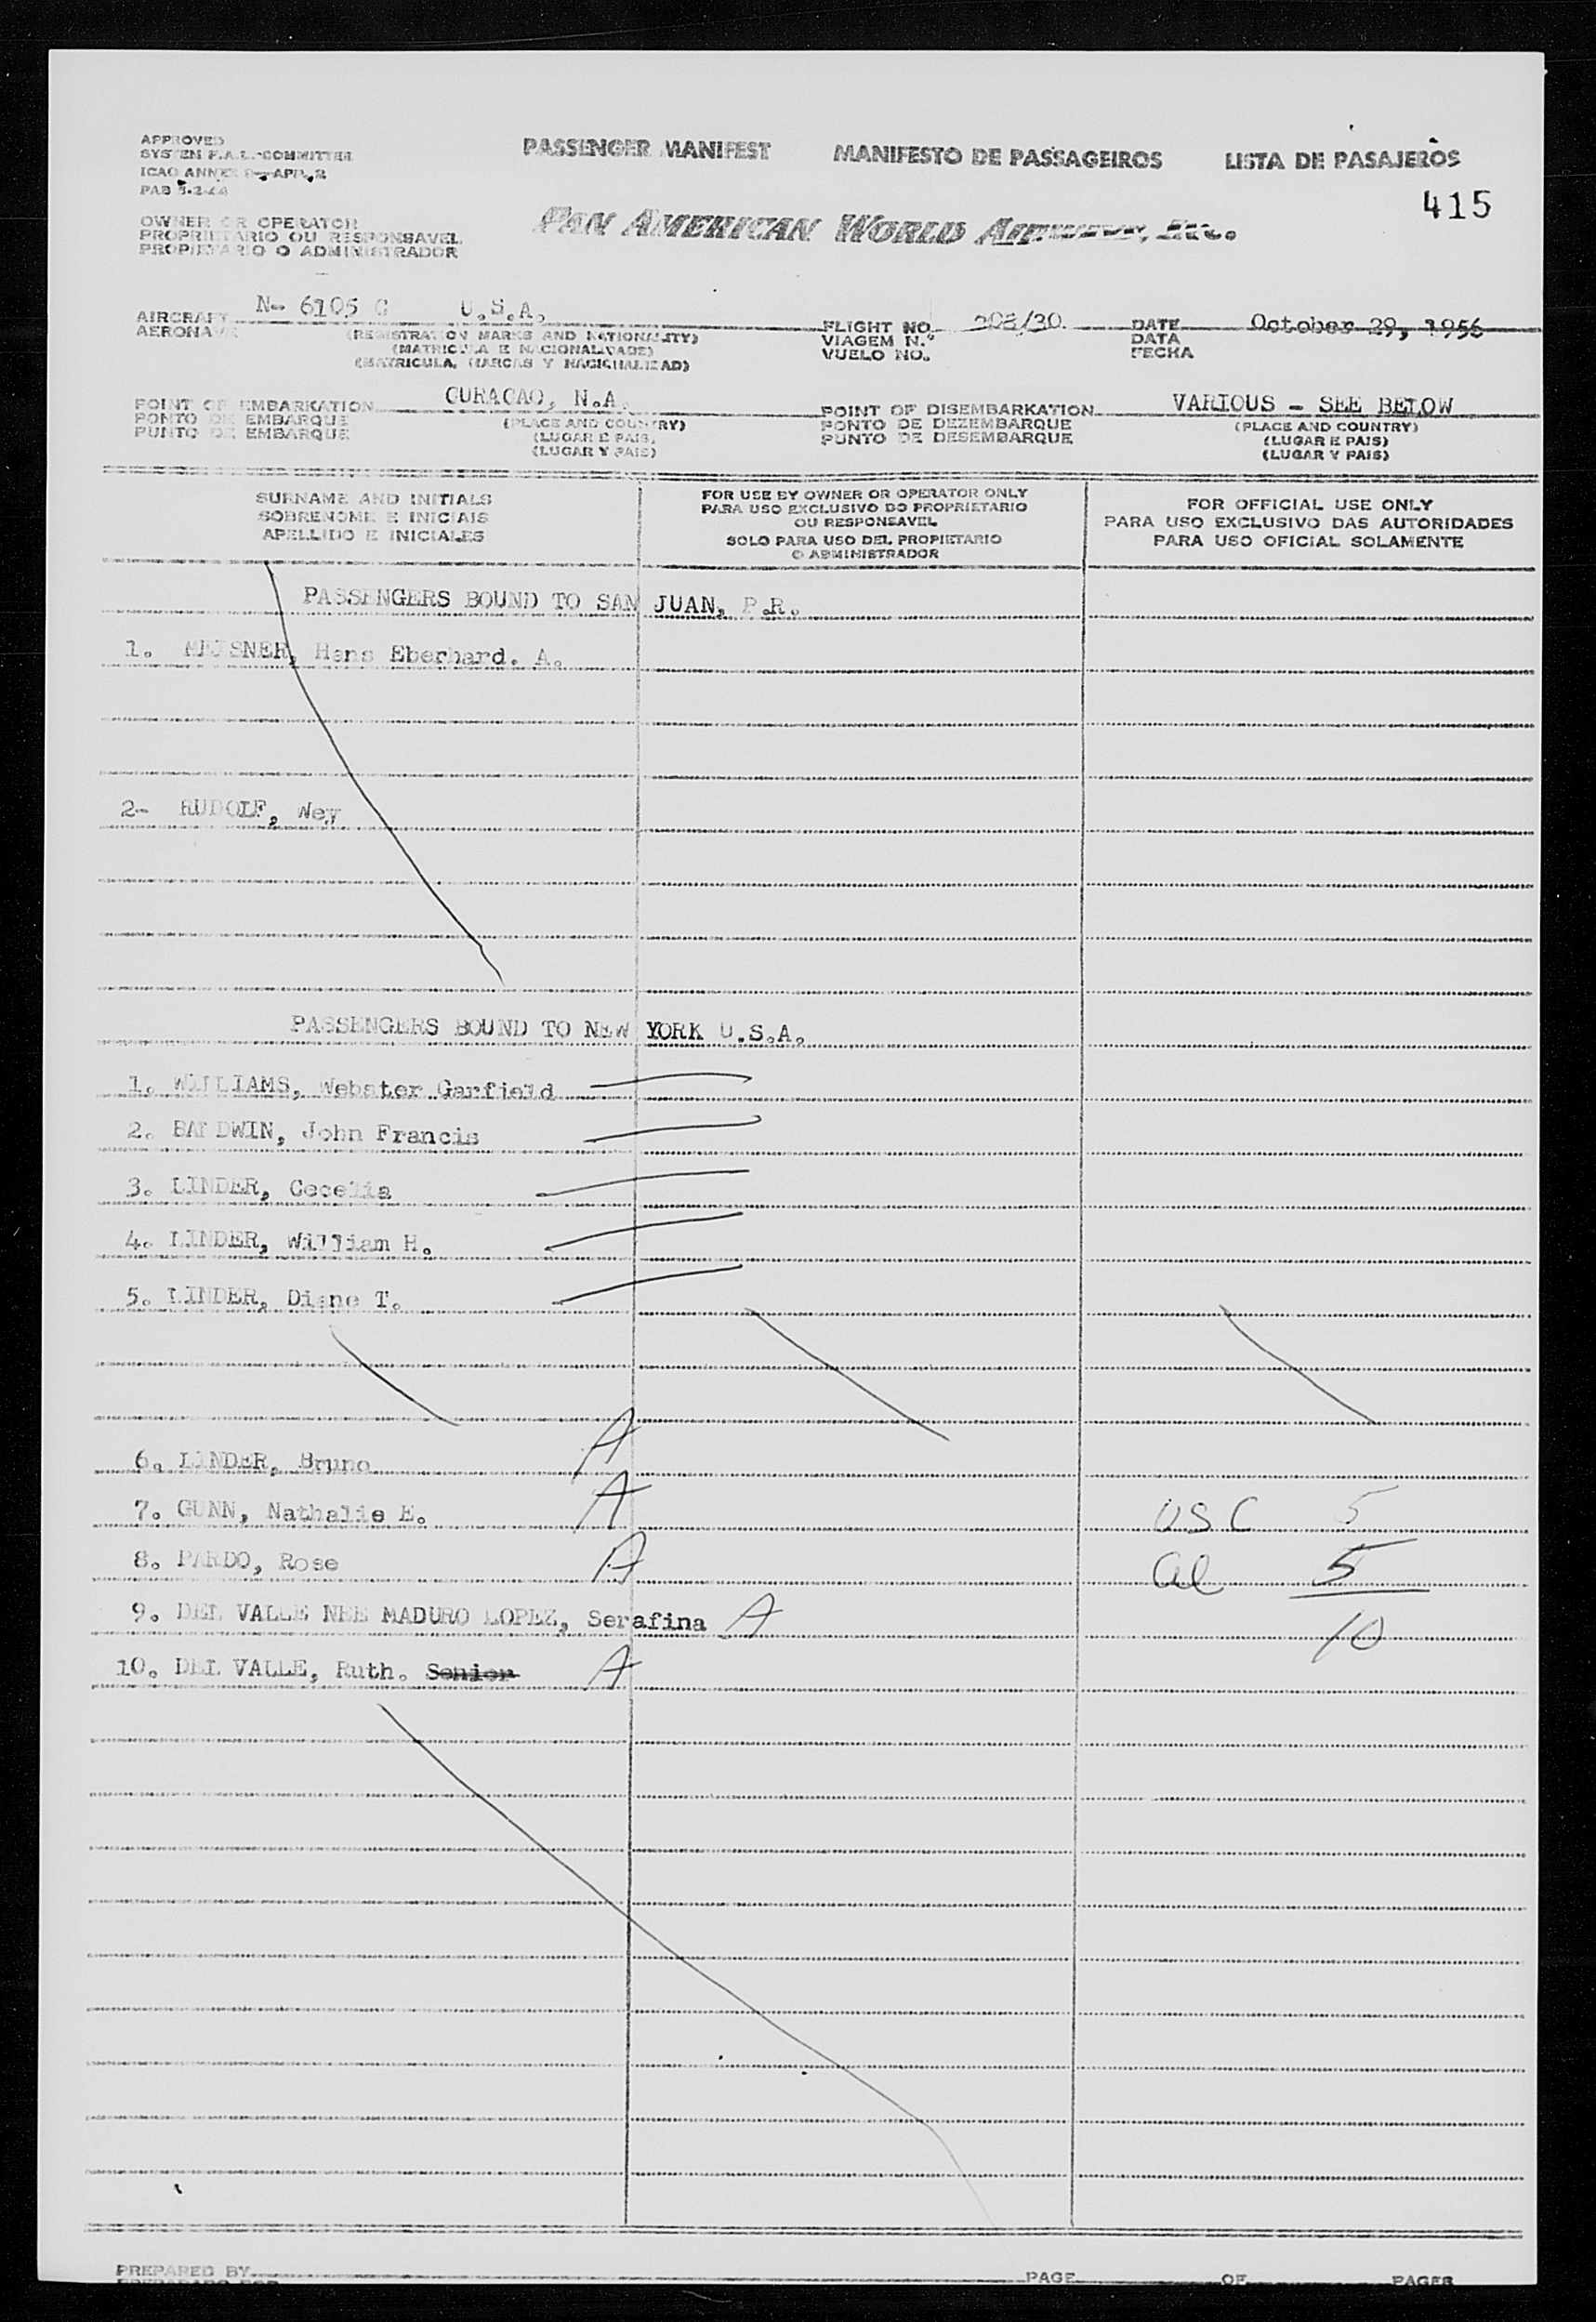 APPROVED
SYSTEM F.A.L. COMMITTEE
ICAO ANNEX 9-APP. 2
PAB
PASSENGER MANIFEST MANIFESTO DE PASSAGEIROS LISTA DE PASAJEROS
415
OWNER OR OPERATOR
PROPRIETARIO OU RESPONSAVEL
PROPIETARIO O ADMINISTRADOR
PAN AMERICAN WORLD AIRWAYS, INC.
AIRCRAFT N- 6105 C U.S.A.
AERONAVE
(REGISTRATION MARKS AND NATIONALITY)
(MATRICULA E NACIONALIDADE)
(MATRICULA, MARCAS Y NACIONALIZAD)
FLIGHT NO. /30
VIAGEM N.º
VUELO NO.
DATE October 29, 1956
DATA
FECHA
POINT OF EMBARKATION CURACAO, N.A.
PONTO DE EMBARQUE
PUNTO DE EMBARQUE
(PLACE AND COUNTRY)
(LUGAR E PAIS)
(LUGAR Y PAIS)
POINT OF DISEMBARKATION VARIOUS - SEE BELOW
PONTO DE DEZEMBARQUE
PUNTO DE DESEMBARQUE
(PLACE AND COUNTRY)
(LUGAR E PAIS)
(LUGAR Y PAIS)
SURNAME AND INITIALS
SOBRENOME E INICIAIS
APELLIDO E INICIALES
FOR USE BY OWNER OR OPERATOR ONLY
PARA USO EXCLUSIVO DO PROPRIETARIO
OU RESPONSAVEL
SOLO PARA USO DEL PROPIETARIO
O ADMINISTRADOR
FOR OFFICIAL USE ONLY
PARA USO EXCLUSIVO DAS AUTORIDADES
PARA USO OFICIAL SOLAMENTE
PASSENGERS BOUND TO SAN JUAN, P.R.
1. MEISNER, Hans Eberhard. A.
2- RUDOLF, Wey
PASSENGERS BOUND TO NEW YORK U.S.A.
1. WILLIAMS, Webster Garfield
2. BALDWIN, John Francis
3. LINDER, Cecelia
4. LINDER, William H.
5. LINDER, Diane T.
6. LINDER, Bruno A
7. GUNN, Nathalie E. A USC 5
8. PARDO, Rose A al 5
9. DEL VALLE NEE MADURO LOPEZ, Serafina A 10
10. DEL VALLE, Ruth. Senior A
PREPARED BY
PAGE OF PAGES